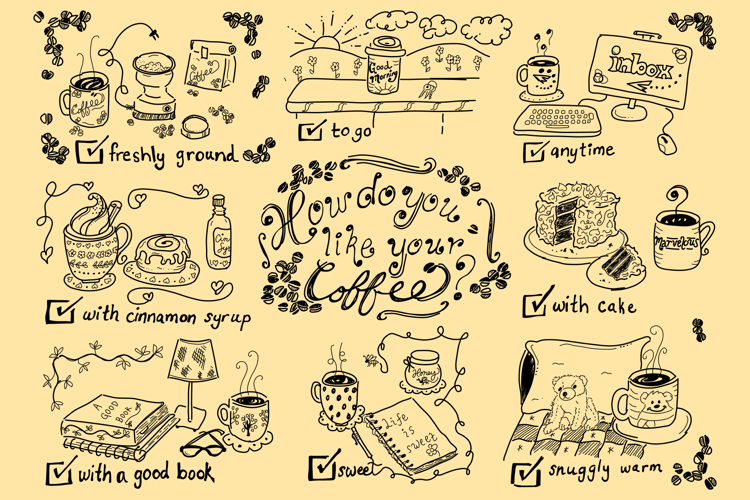 Coffee
Coffee
freshly ground
Good
morning
to go
inbox
anytime
How do you
like your
Coffee?
with cinnamon syrup
Marvelous
with cake
A
GOOD
BOOK
with a good book
Honey
Life
is
sweet
sweet
snuggly warm